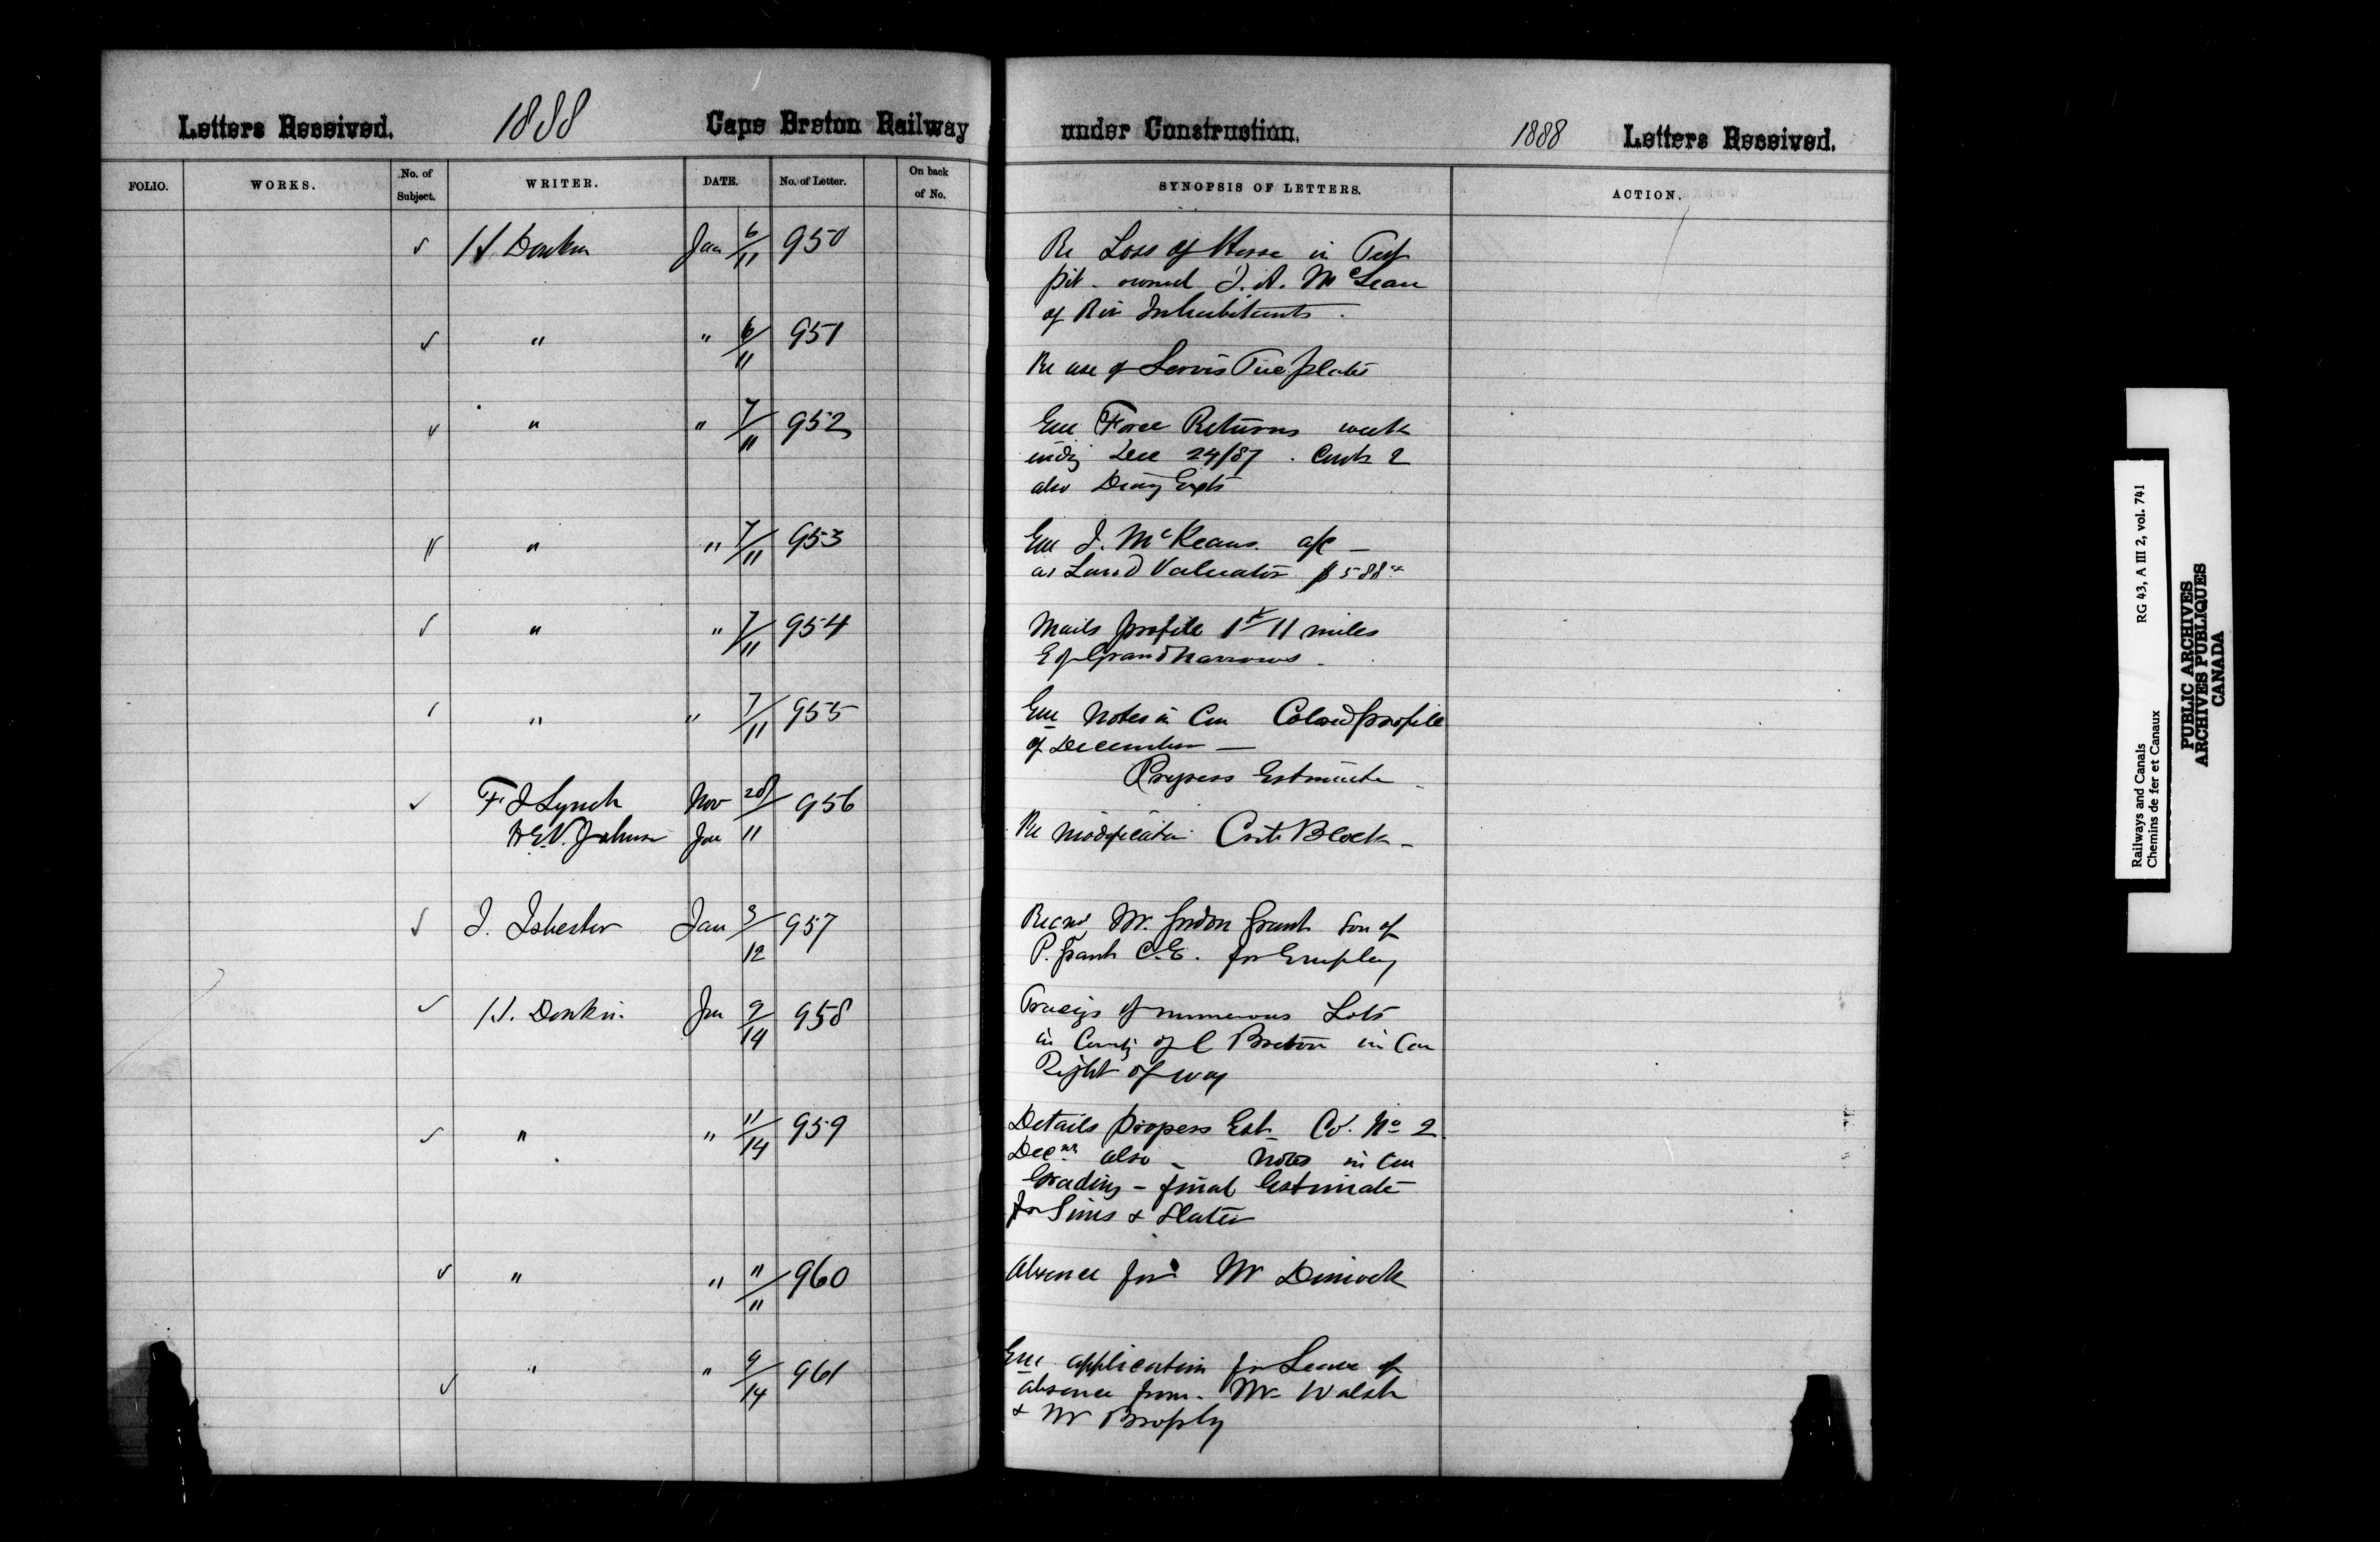 Letters Received. 1888 Cape Breton Railway under Construction. 1888 Letters Received.
FOLIO. WORKS. No. of Subject. WRITER. DATE. No. of Letter. On back of No. SYNOPSIS OF LETTERS. ACTION.
H. Donkin Jan 6/11 950 Re Loss of Horse in
pit - owned J. A. McLean
of Riv Inhabitants.
" " 6/11 951 Re use of Servis Tie plates
" " 7/11 952 Enc Force Returns week
endg Dec 24/87. Cont 2
also
" " 7/11 953 Enc J. McKeans. a/c —
as Land Valuator $588
" " 7/11 954 Mails profile 1st 11 miles
E of Grand Narrows.
" " 7/11 955 Enc Notes in Con Colored profile
of December —
Progress Estimate
F J Lynch Nov 28/ 956
H.E.V. Johnson Jan 11 Re modification Block -
J. Isbester Jan 3/12 957 Recmd Mr. Gordon Grant Son of
P. Grant C.E. for Employ
H. Donkin. Jan 9/14 958 Tracigs of numerous Lots
in County of C Breton in Con
Right of way
" " 11/14 959 Details progress Est Co. No 2
Decmr also - Notes in Con
Grading - final Estimate
for Sims & Slater
" " 11/11 960 Absence for Mr Dimock
" " 9/14 961 Enc application for Leave of
absence from. Mr Walsh
& Mr Brophy
Railways and Canals RG 43, A III 2, vol. 741
Chemins de fer et Canaux
PUBLIC ARCHIVES
ARCHIVES PUBLIQUES
CANADA